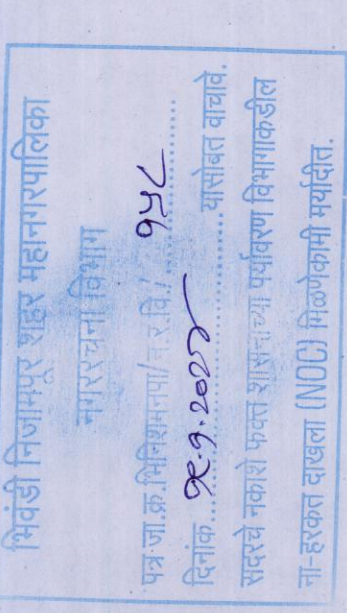 भिवंडी निजामपूर शहर महानगरपालिका
नगररचना विभाग
पत्र जा.क्र.भिनिशमनपा/न.र.वि./ १५८
दिनांक १९.१.२०२४ यासोबत वाचावे.
सदरचे नकाशे फक्त शासनाच्या पर्यावरण विभागाकडील
ना-हरकत दाखला (NOC) मिळणेकामी मर्यादीत.